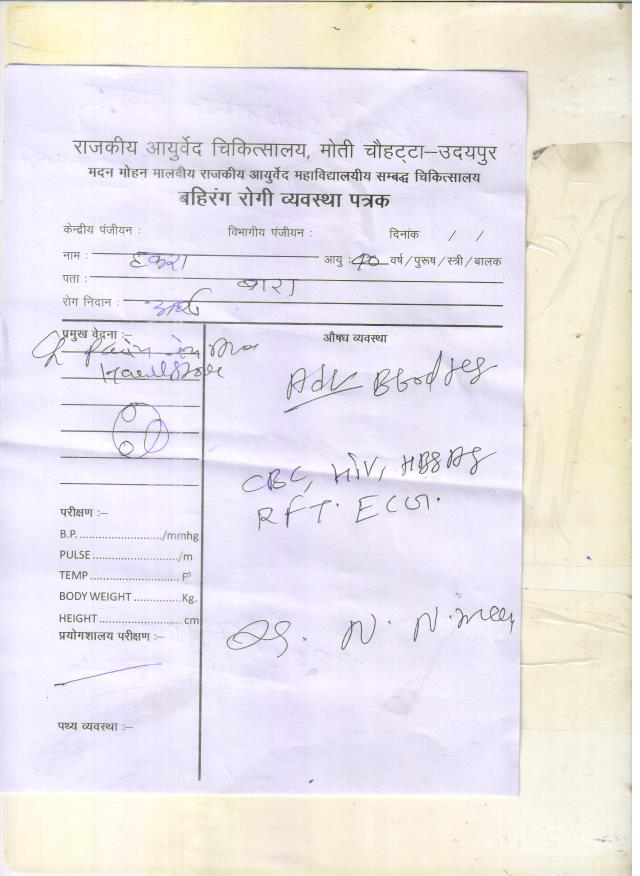 राजकीय आयुर्वेद चिकित्सालय, मोती चौहट्टा–उदयपुर
मदन मोहन मालवीय राजकीय आयुर्वेद महाविद्यालयीय सम्बद्ध चिकित्सालय
बहिरंग रोगी व्यवस्था पत्रक
केन्द्रीय पंजीयन : विभागीय पंजीयन : दिनांक / /
नाम : हकरा आयु : 40 वर्ष/पुरूष/स्त्री/बालक
पता : बारा
रोग निदान : अर्श
प्रमुख वेदना :– औषध व्यवस्था
Pain in
Adv Blood
CBC, HIV, HBSAG
RFT. ECG.
परीक्षण :–
B.P. ........................./mmhg
PULSE .........................../m
TEMP ........................... F°
BODY WEIGHT ..............Kg.
HEIGHT .......................... cm
प्रयोगशालय परीक्षण :–
Dr. N. N.
पथ्य व्यवस्था :–